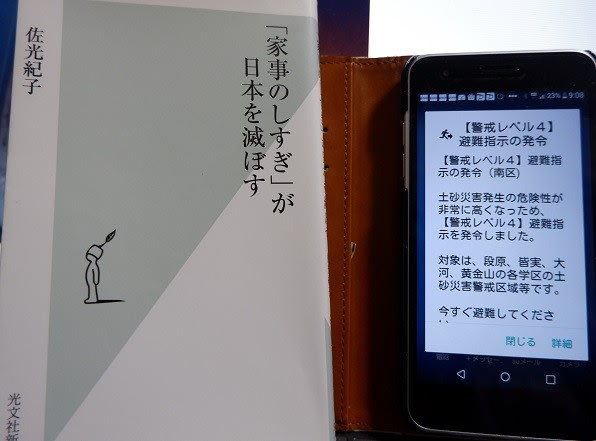 「家事のしすぎ」が
日本を滅ぼす
佐光紀子
光文社新
23% 9:08
【警戒レベル４】
避難指示の発令
【警戒レベル４】避難指
示の発令（南区)
土砂災害発生の危険性が
非常に高くなっため、
【警戒レベル４】避難指
示を発令しました。
対象は、段原、皆実、大
河、黄金山の各学区の土
砂災害警戒区域等です。
今すぐ避難してくださ
閉じる 詳細